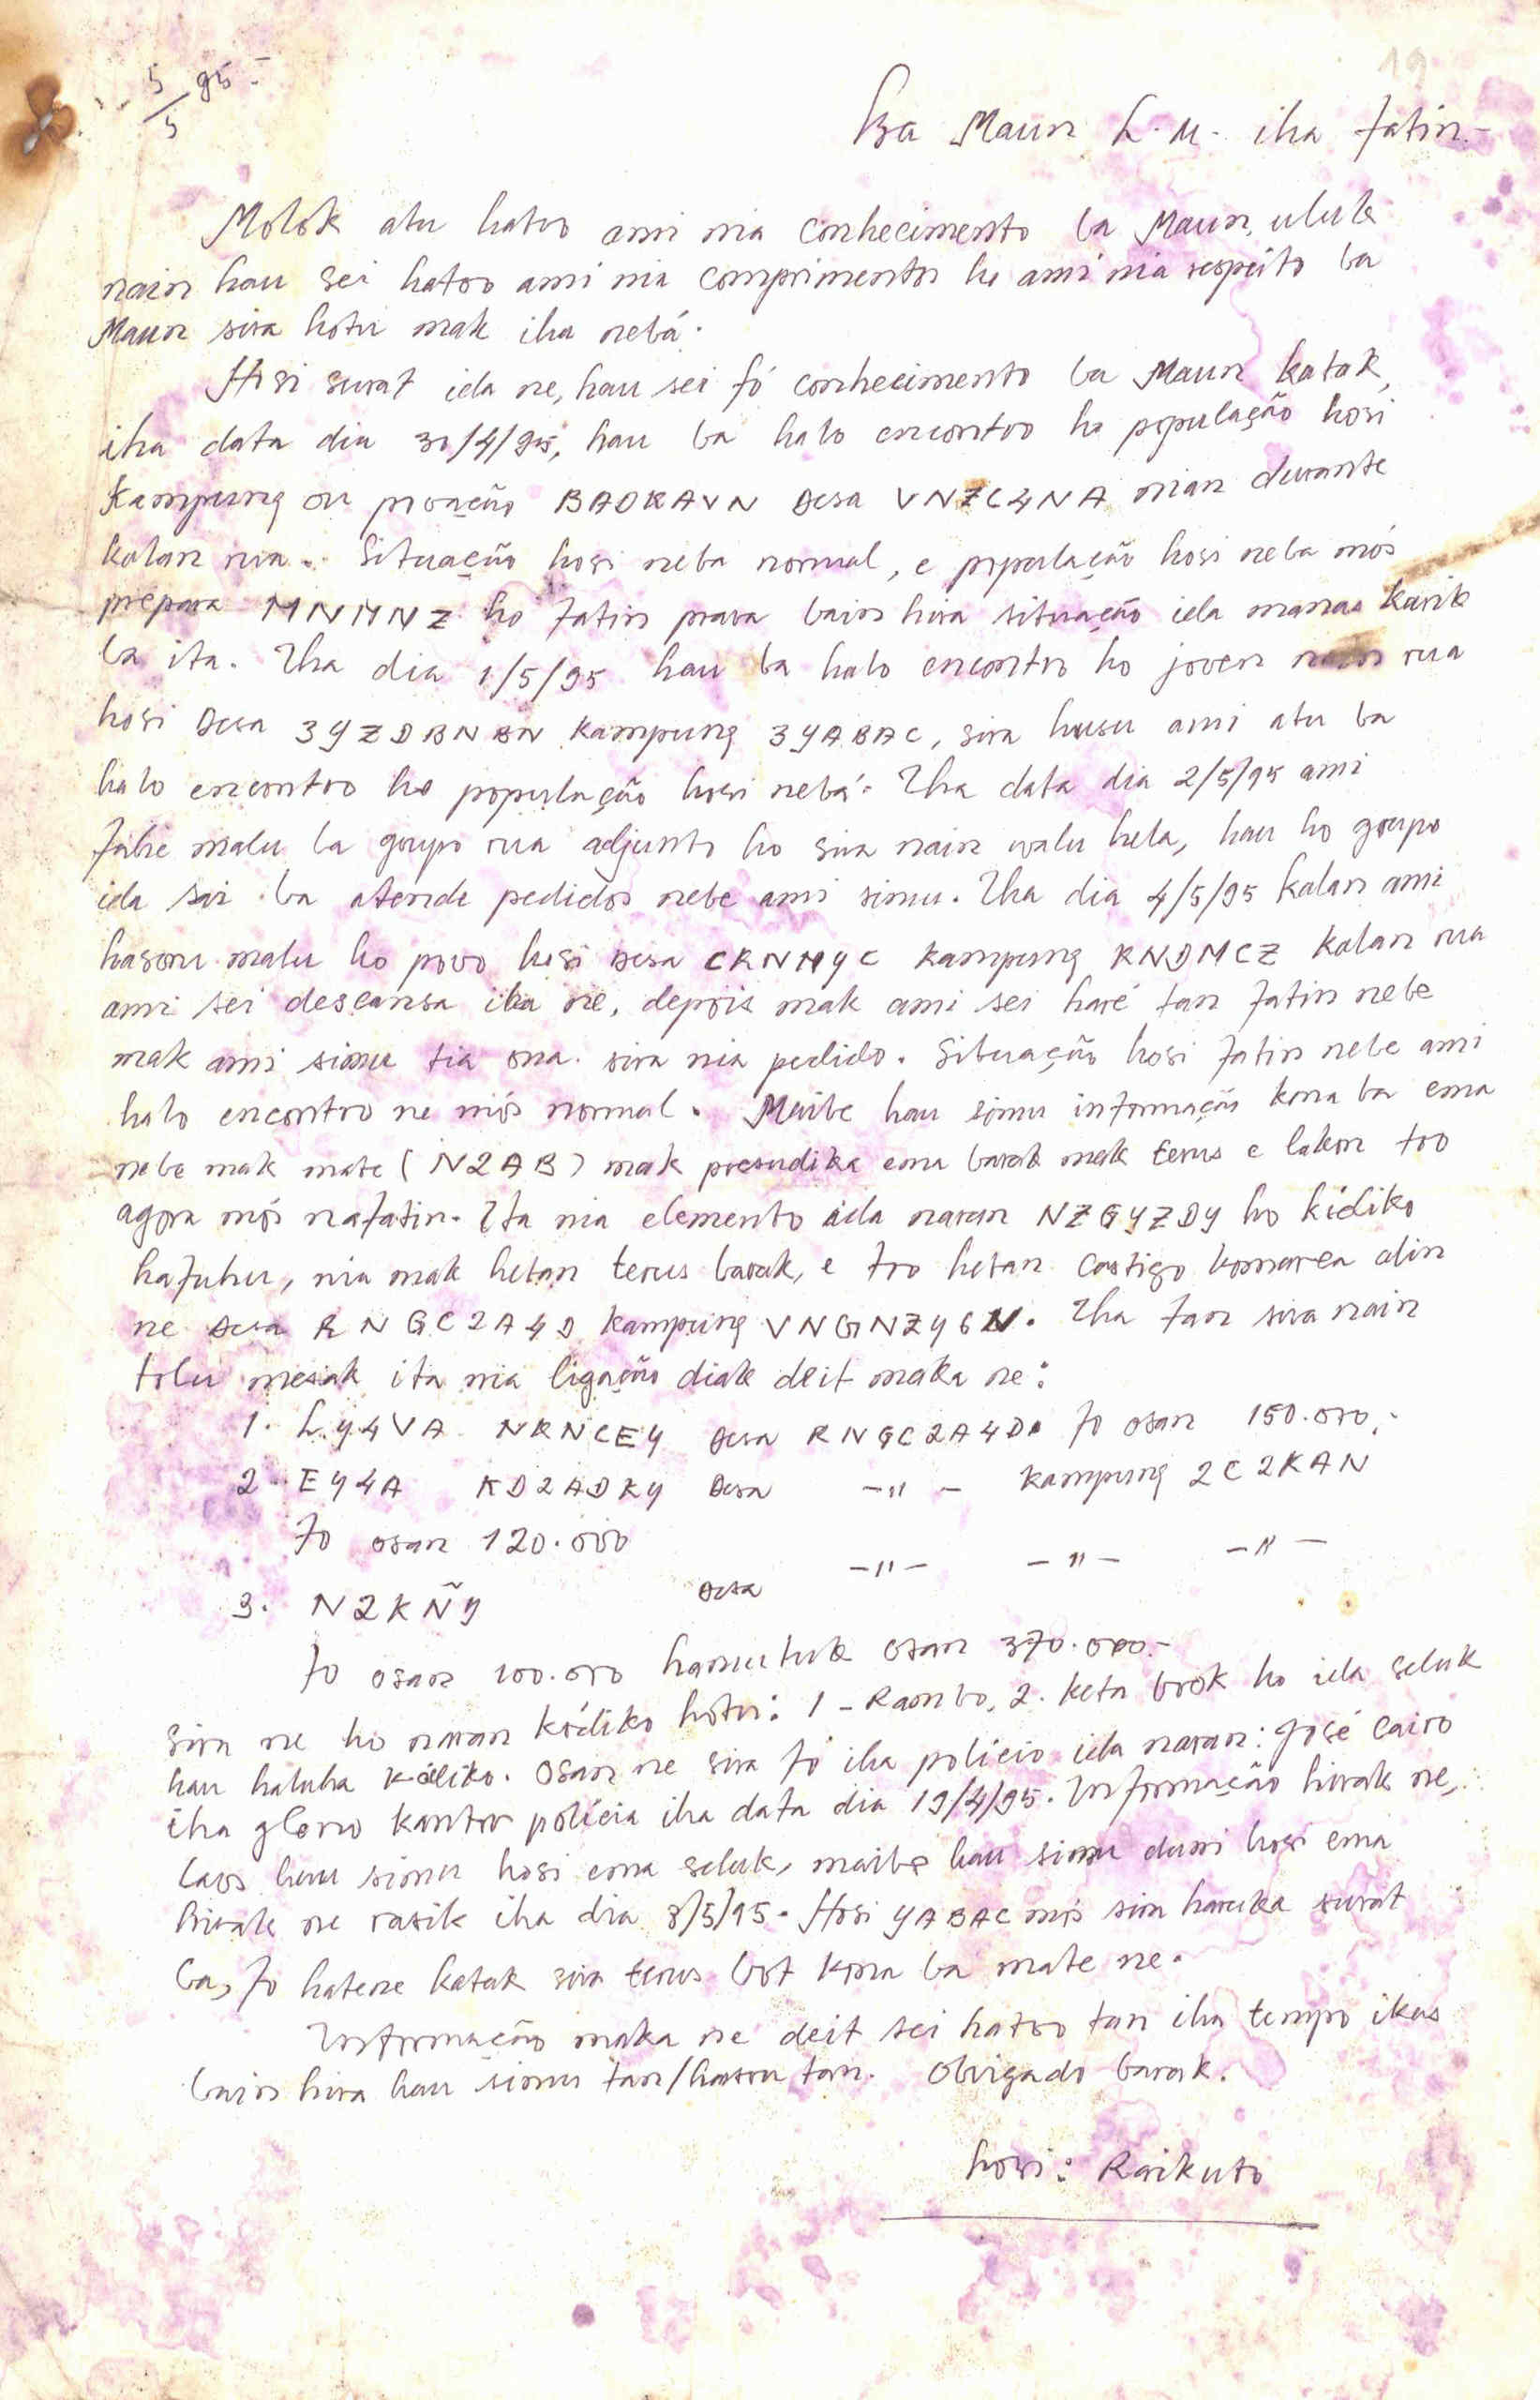 5/5 95-
19
Ba Maun L.M. iha fatin.-
Molok atu hatoo ami nia conhecimento ba Maun, uluk
nain hau sei hatoo ami nia comprimentos ho ami nia respeito ba
Maun sira hotu mak iha nebá.
Hosi surat ida ne, hau sei fó conhecimento ba Maun katak,
iha data dia 30/4/95, hau ba halo encontro ho população hosi
Kampung ou povação BADRAVN Desa VNZC4NA nian durante
kalan rua. Situação hosi neba normal, e população hosi neba mós
prepara MNMNZ ho fatin para bain hira situação ida manas karik
ba ita. Iha dia 1/5/95 hau ba halo encontro ho joven nain rua
hosi Desa 3YZDBNBN Kampung 3YABAC, sira husu ami atu ba
halo encontro ho população hosi nebá. Iha data dia 2/5/95 ami
fahe malu ba grupo rua adjunto ho sira nain walu hela, hau ho grupo
ida sai ba atende pedidos nebe ami simu. Iha dia 4/5/95 kalan ami
hasoru malu ho povo hosi Desa CRNMYC Kampung RNDMCZ kalan rua
ami sei descansa iha ne, depois mak ami sei haré tan fatin nebe
mak ami simu tia ona sira nia pedido. Situação hosi fatin nebe ami
halo encontro ne mós normal. Maibe hau simu informação kona ba ema
nebe mak mate (N2AB) mak presudika ema barak mak terus e lakon too
agora mós nafatin. Ita nia elemento ida naran NZGYZDY ho kódiko
hafuhu, nia mak hetan terus barak, e too hetan castigo komarca alin
ne Desa RNGC2A4D Kampung VNGNZY6N. Iha tan sira nain
tolu mesak ita nia ligação diak deit maka ne:
1. LY4VA NRNCEY Desa RNGC2A4D. fo osan 150.000,-
2. EY4A KD2ADRY Desa -"- Kampung 2C2KAN
fo osan 120.000
3. N2KÑY Desa -"- -"- -"-
fo osan 100.000 hamutuk osan 370.000.-
Sira ne ho naran kódiko hotu: 1 - Rambo, 2. Keta book ho ida seluk
hau haluha kódiko. Osan ne sira fó iha polícia ida naran: José Cairo
iha gleno kantor polícia iha data dia 19/4/95. Informação hirak ne,
laos hau simu hosi ema seluk, maibe hau simu duni hosi ema
hirak ne rasik iha dia 8/5/95. Hosi YABAC mós sira haruka surat
ba, fo hatene katak sira terus bot kona ba mate ne.
Informação maka ne deit sei hatoo tan iha tempo ikus
bain hira hau simu tan/hasoru tan. Obrigado barak.
hosi: Raikuto